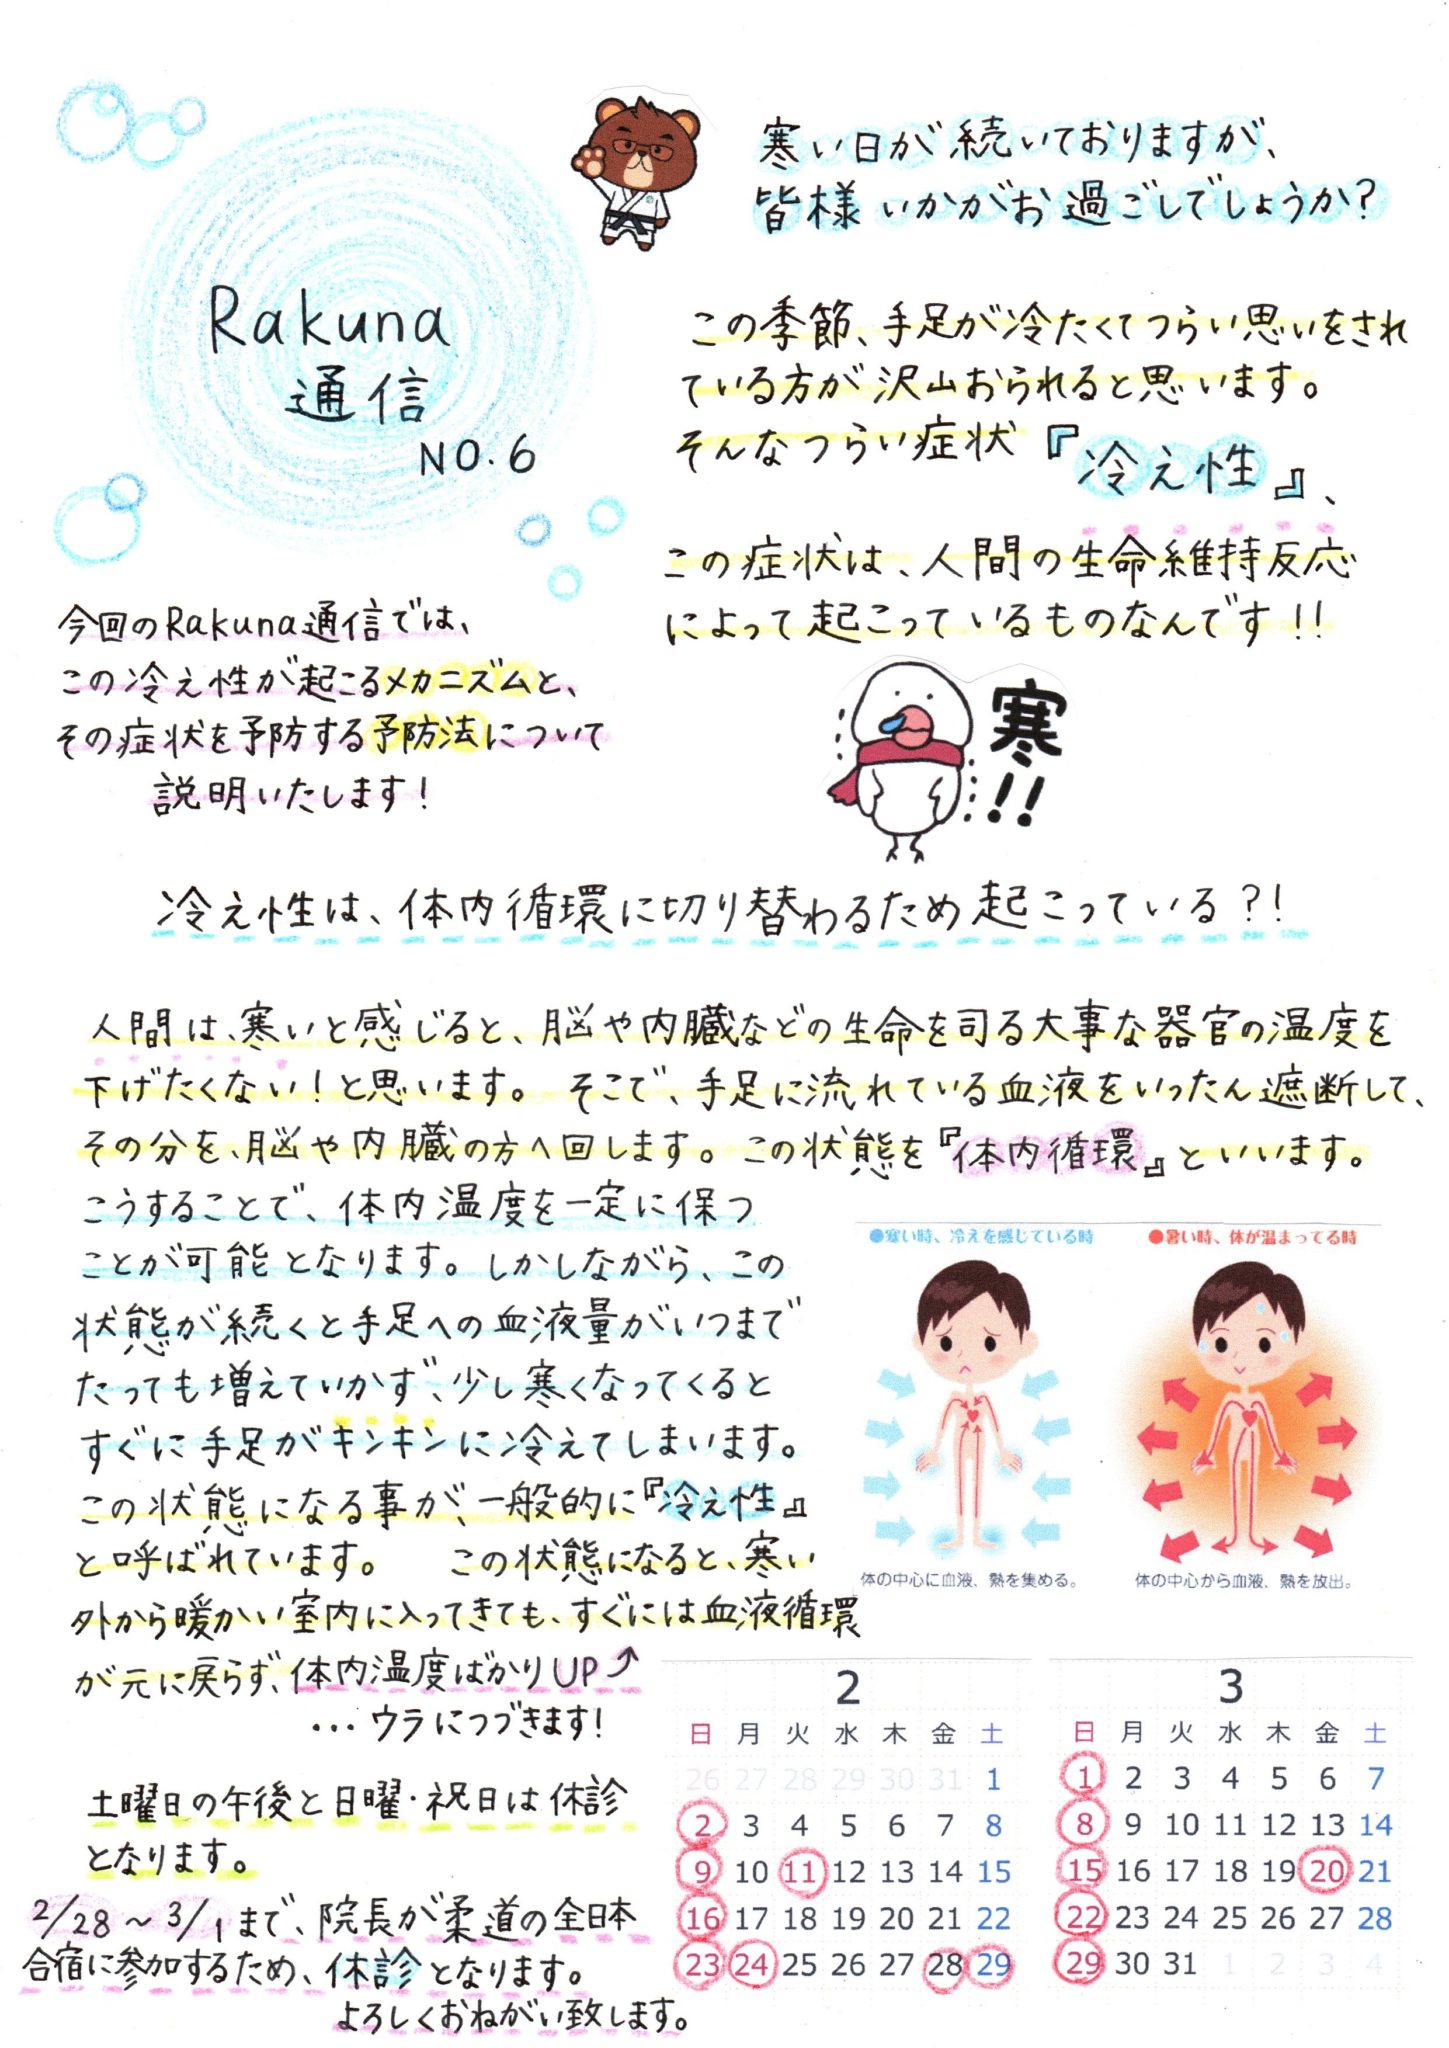 Rakuna
通信
NO.6
寒い日が続いておりますが、
皆様いかがお過ごしでしょうか?
この季節、手足が冷たくてつらい思いをされ
ている方が沢山おられると思います。
そんなつらい症状『冷え性』、
この症状は、人間の生命維持反応
によって起こっているものなんです!!
今回のRakuna通信では、
この冷え性が起こるメカニズムと、
その症状を予防する予防法について
説明いたします!
寒!!
冷え性は、体内循環に切り替わるため起こっている?!
人間は、寒いと感じると、脳や内臓などの生命を司る大事な器官の温度を
下げたくない!と思います。そこで、手足に流れている血液をいったん遮断して、
その分を、脳や内臓の方へ回します。この状態を『体内循環』といいます。
こうすることで、体内温度を一定に保つ
ことが可能となります。しかしながら、この
状態が続くと手足への血液量がいつまで
たっても増えていかず、少し寒くなってくると
すぐに手足がキンキンに冷えてしまいます。
この状態になる事が、一般的に『冷え性』
と呼ばれています。 この状態になると、寒い
外から暖かい室内に入ってきても、すぐには血液循環
が元に戻らず、体内温度ばかりUP↗
...ウラにつづきます!
●寒い時、冷えを感じている時
体の中心に血液、熱を集める。
●暑い時、体が温まってる時
体の中心から血液、熱を放出。
土曜日の午後と日曜・祝日は休診
となります。
2/28~3/1まで、院長が柔道の全日本
合宿に参加するため、休診となります。
よろしくおねがい致します。
2
日 月 火 水 木 金 土
26 27 28 29 30 31 1
2 3 4 5 6 7 8
9 10 11 12 13 14 15
16 17 18 19 20 21 22
23 24 25 26 27 28 29
3
日 月 火 水 木 金 土
1 2 3 4 5 6 7
8 9 10 11 12 13 14
15 16 17 18 19 20 21
22 23 24 25 26 27 28
29 30 31 1 2 3 4